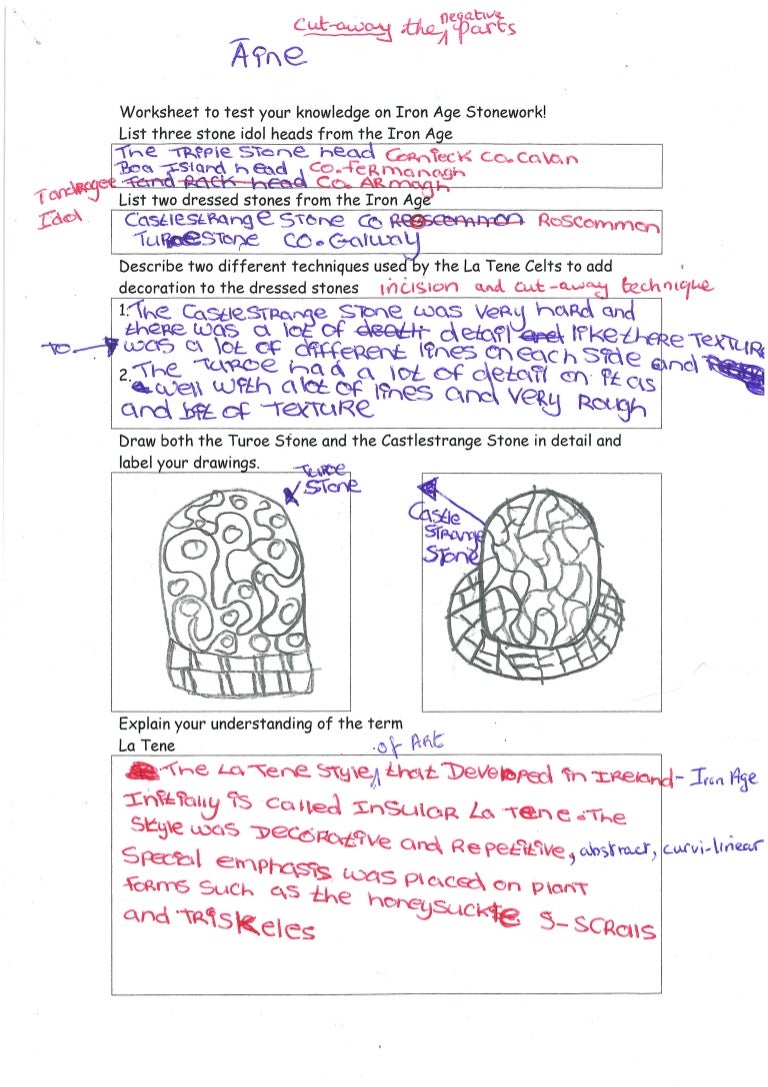 cut-away the negative parts
Áine
Worksheet to test your knowledge on Iron Age Stonework!
List three stone idol heads from the Iron Age
The TRiPle Stone head Cornieck Co. Cavan
Boa Island head, Co. Fermanagh
Tandragee Idol
Tand RACK head Co Armagh
List two dressed stones from the Iron Age
CAStleStRange Stone Co Reoscommon Roscommon
Turoe Stone Co. Galway
Describe two different techniques used by the La Tene Celts to add
decoration to the dressed stones incision and cut-away technique
1. The CAStleStRange Stone was very hard and
there was a lot of death detail and like there TEXTUR
to was a lot of different lines on each side and
2. The Turoe had a lot of detail on it as
well with a lot of lines and very Rough
and bit of Texture
Draw both the Turoe Stone and the Castlestrange Stone in detail and
label your drawings.
Turoe
Stone
Castle
Strange
Stone
Explain your understanding of the term
La Tene
The La Tene Style of Art, that Developed in IReland - Iron Age
Initially is called Insular La Tene. The
Style was Decorative and Repetitive, abstract, curvi-linear
Special emphasis was placed on plant
forms such as the honeysuckle S-SCRalls
and TRiskeles